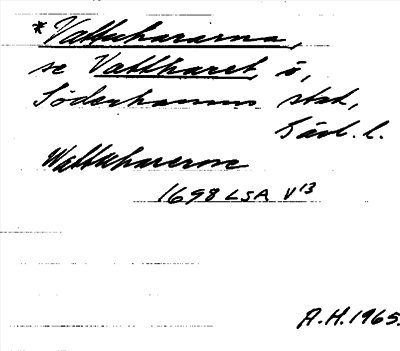 *Vattuhararna,
se Vattharet, ö,
Söderhamns stad,
Gävl. l.
Wattuharerne
1698 LSA V 13
A.H. 1965.